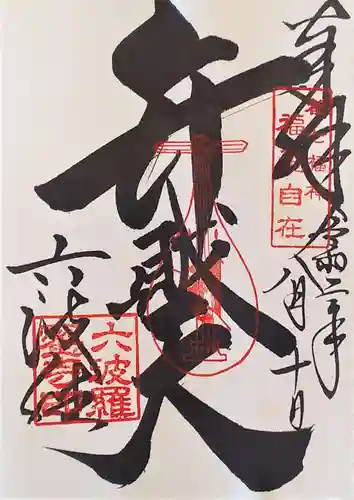 奉拝
令和二年
八月十日
弁財天
六波羅
六波羅
福
自在